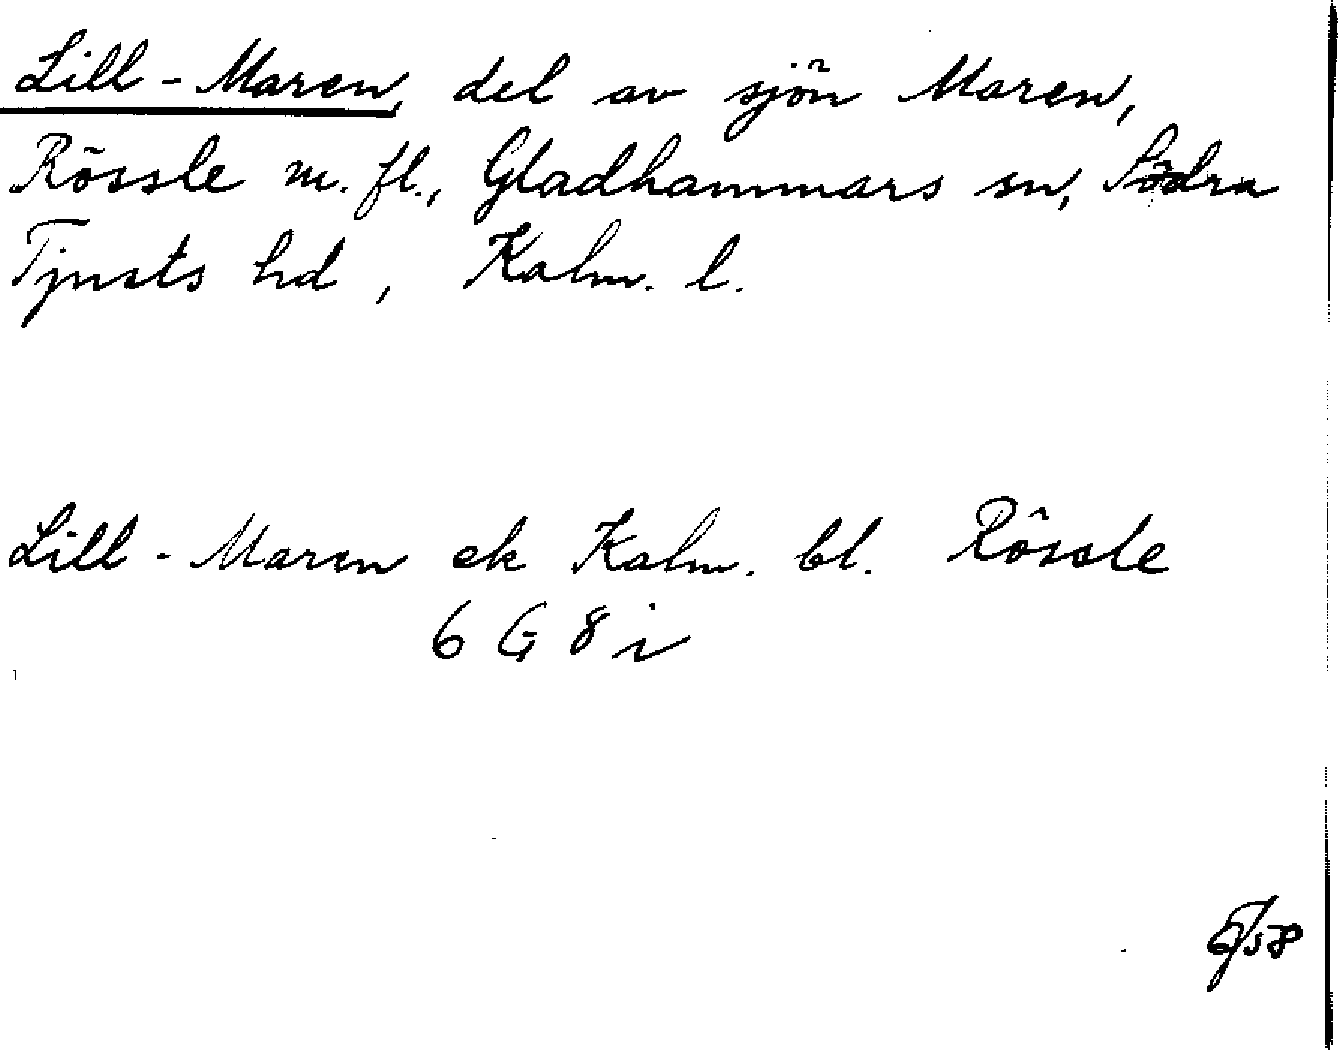 Lill-Maren, del av sjön Maren,
Rössle m. fl., Gladhammars sn, Södra
Tjusts hd, Kalm. l.
Lill-Maren ek Kalm. bl. Rössle
6 G 8 i